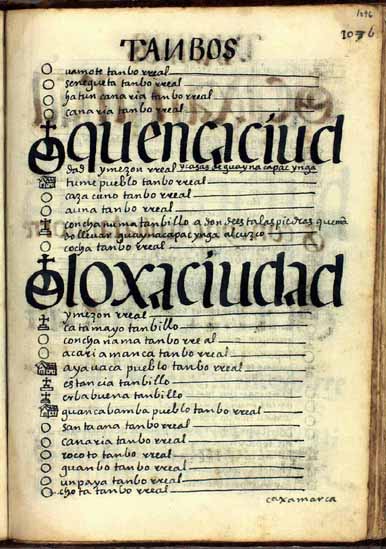 1086
1076
TANBOS
uamote tanbo rreal
senegueta tanbo rreal
hatun canaria tanbo rreal
canaria tanbo rreal
quencaciud
dad ymezon rreal y casas de guayna capac ynga
tume pueblo tanbo rreal
caza cuno tanbo rreal
auna tanbo rreal
concha numa tanbillo a don de estalas piedras que mã
do lleuar guaynacapac ynga al cuzco
cocha tanbo rreal
loxaciudad
ymezon rreal
catamayo tanbillo
concha nama tanbo rreal
acariamanca tanbo rreal
ayauaca pueblo tanbo rreal
estancia tanbillo
erba buena tanbillo
guancabamba pueblo tanbo rreal
santa ana tanbo rreal
canaria tanbo rreal
rocoto tanbo rreal
guanbo tanbo rreal
unpaya tanbo rreal
chota tanbo rreal
caxamarca